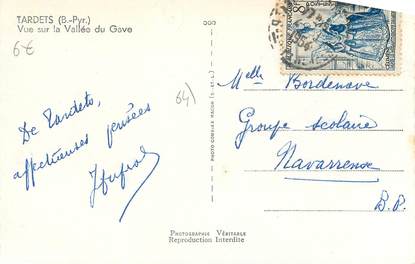 TARDETS (B.-Pyr.)
Vue sur la Vallée du Gave
6€
64)
De Tardets,
affectueuses pensées
Melle Bordenave
Groupe scolaire
Navarrenx
B.P.
PHOTOGRAPHIE VÉRITABLE
Reproduction Interdite